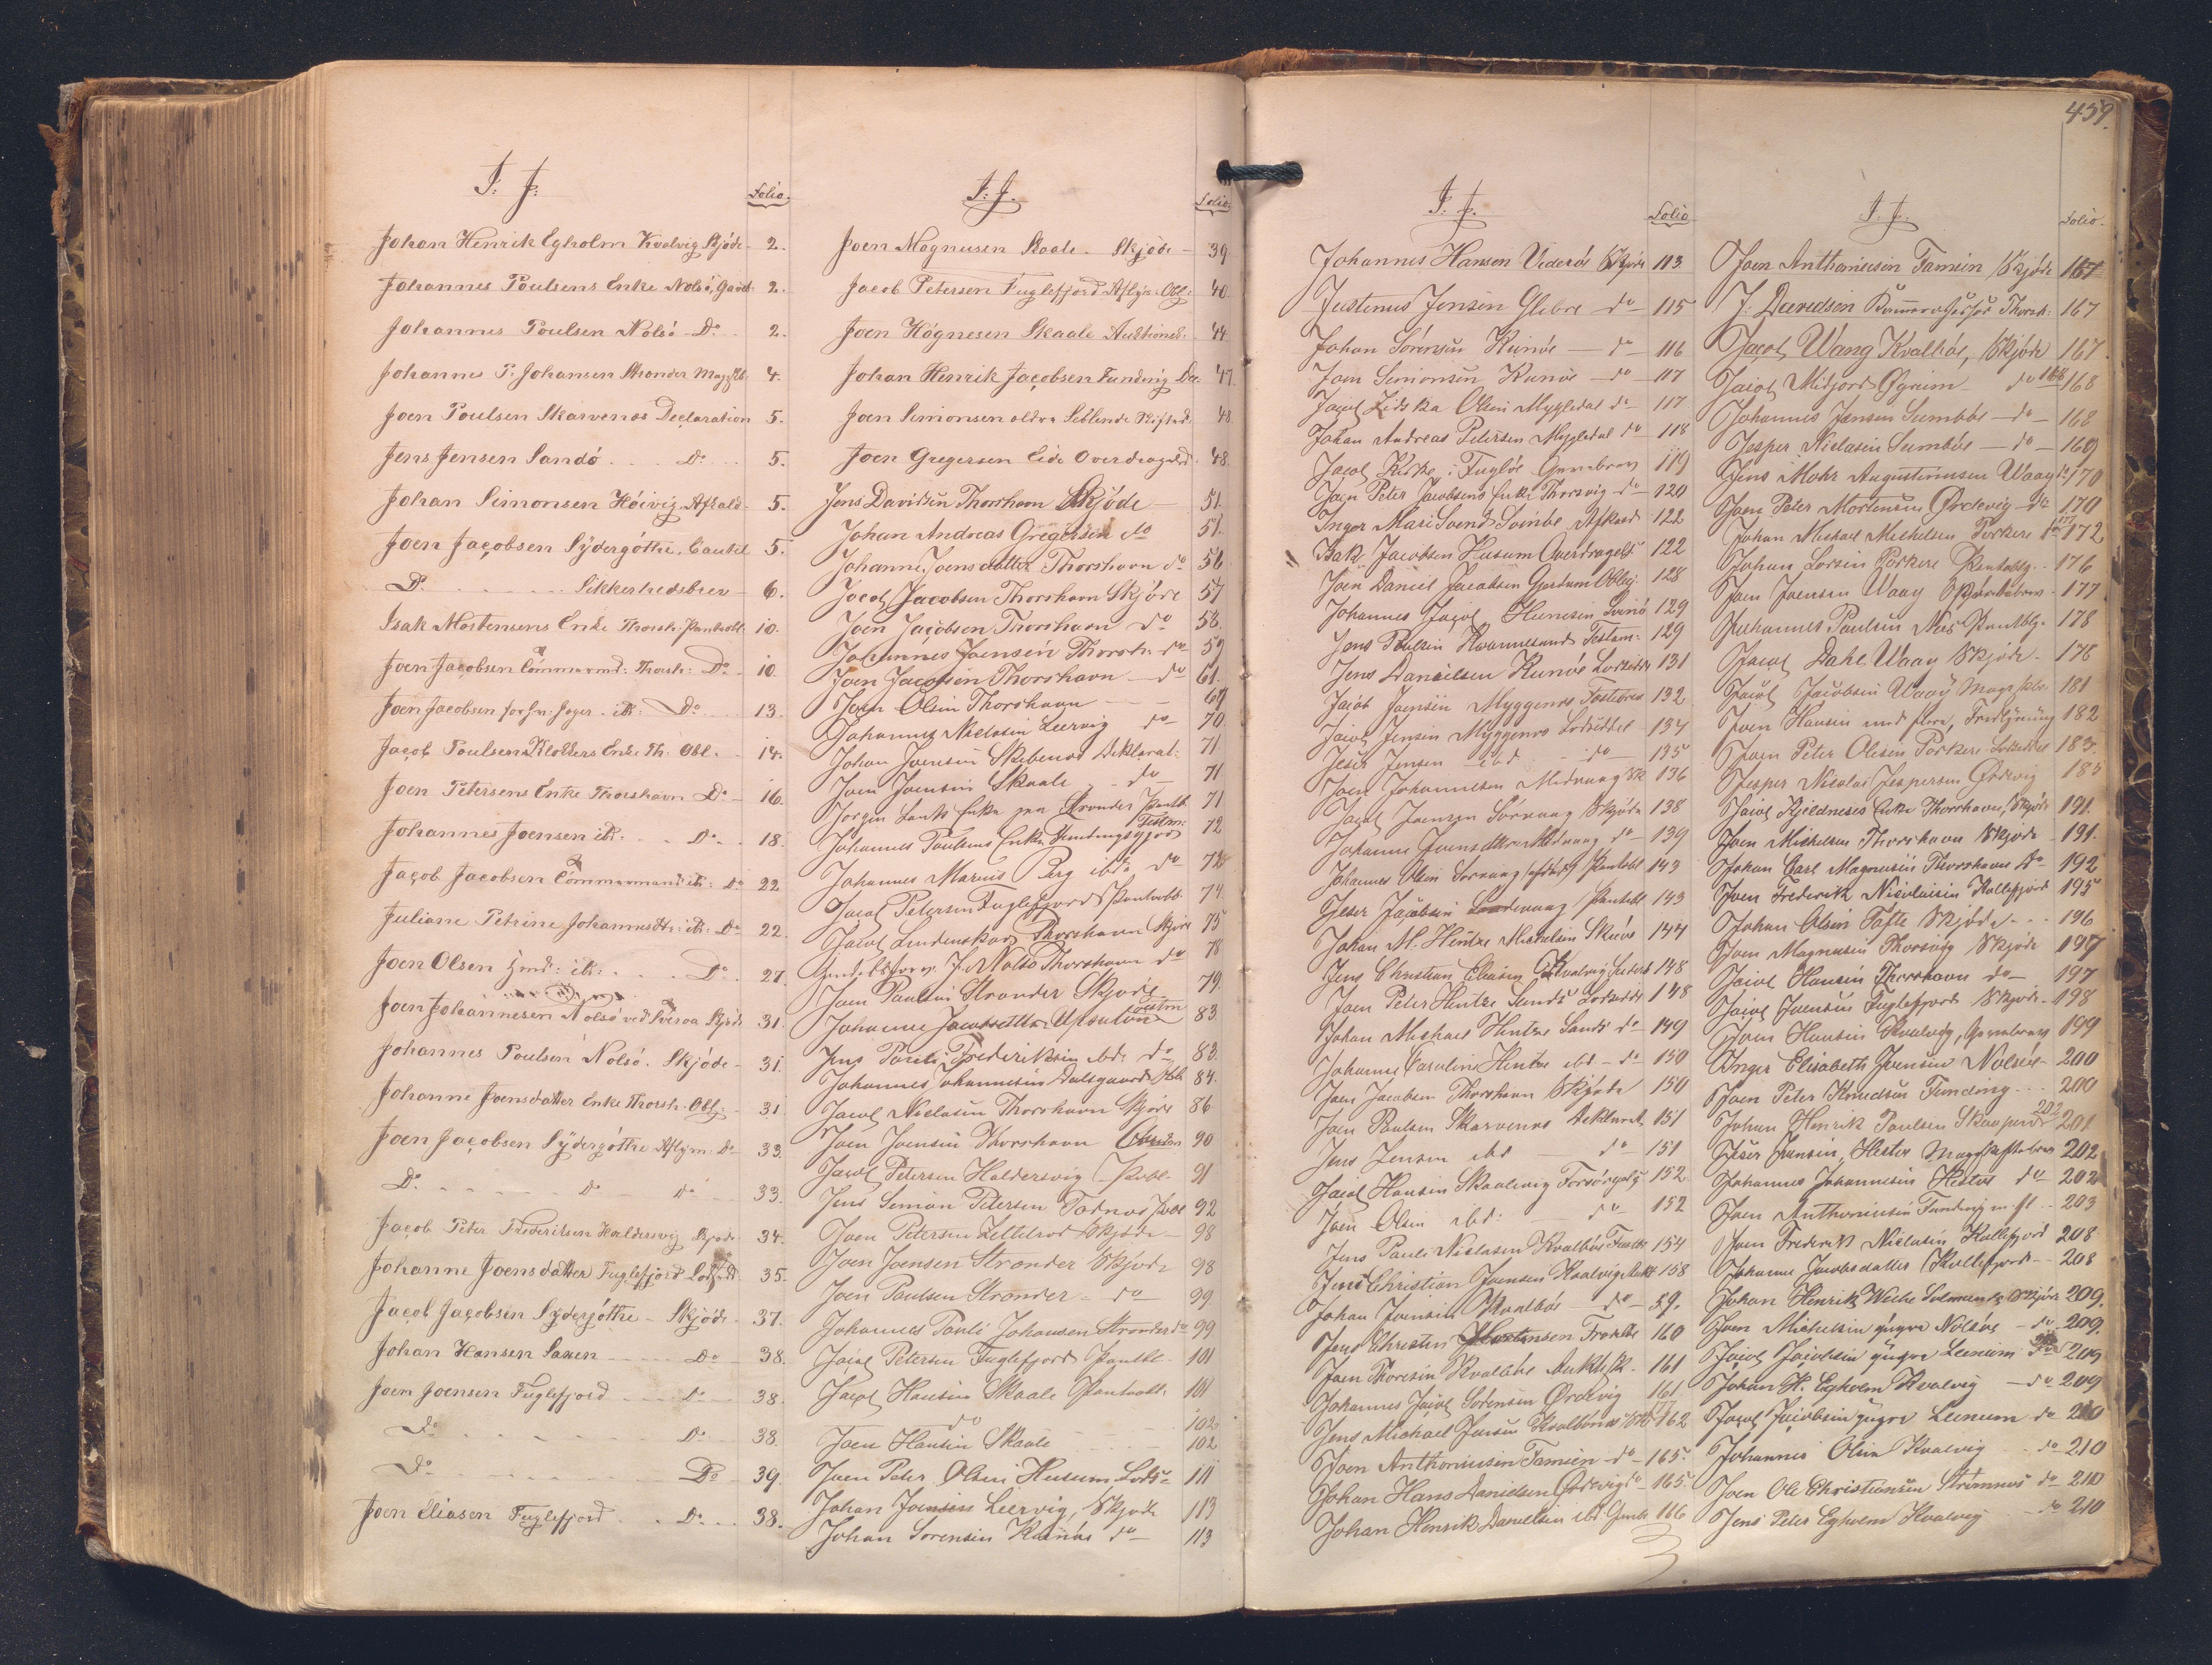 I. J.
Folio.
Johan Henrik Egholm Kvalvig Skjöde 2.
Johannes Poulsens Enke Nolsö, Gaveb. 2.
Johannes Poulsen Nolsö Do 2.
Johannes P. Johansen Strander Mageskb. 4.
Joen Poulsen Skarvenæs Declaration 5.
Jens Jensen Sandö Do 5.
Johan Simonsen Höivig Afkald 5.
Joen Jacobsen Sydergöthe, Cautel 5.
Do Sikkerhedsbrev 6.
Isak Mortensens Enke Thorsh. Pantobl. 10.
Joen Jacobsen Commarmd: Thorsh: Do 10.
Joen Jacobsen Do 13.
Jacob Poulsen Klokkers Enke Th. Obl. 14.
Joen Petersens Enke Thorshavn Do 16.
Johannes Joensen ib: Do 18.
Jacob Jacobsen Commarmand ib: Do 22
Juliane Petrine Johannesdtr: ib: Do 22.
Joen Olsen ib: Do 27.
Joen Johannesen Nolsö Skjöde 31.
Johannes Poulsen Nolsö. Skjöde 31.
Johanne Joensdatter Enke Thorsh. Obl: 31
Joen Jacobsen Sydergöthe Aflysn. Do 33.
Do do do 33.
Jacob Peter Frederiksen Haldersvig Skjöde 34.
Johanne Joensdatter Fuglefjord 35.
Jacob Jacobsen Sydergöthe Skjöde 37.
Johan Hansen Saxen Do 38.
Joen Joensen Fuglefjord Do 38.
Do Do 38.
Do Do 39.
Joen Eliasen Fuglefjord Do 38.
I. J.
Folio.
Joen Magnusen Skaale Skjöde 39
Jacob Petersen Fuglefjord Aflys. Obl: 40
Joen Högnesen Skaale Auktions. 44
Johan Henrik Jacobsen Funding Do 47.
Joen Simonsen ældre Seblende Skiftebr. 48
Joen Gregersen Eide Overdragelse 48.
Jens Davidsen Thorshavn Skjöde 51.
Johan Andreas Gregersen do 51.
Johanne Joensdatter Thorshavn do 56
Jacob Jacobsen Thorshavn Skjöde 57
Joen Jacobsen Thorshavn do 58.
Johannes Joensen Thorsh. do 59
Joen Jacobsen Thorshavn do 61.
Joen Olsen Thorshavn 69
Johannes Niclasen Leervig do 70
Johan Joensen Skibenæs Deklarat. 71
Joen Joensen Skaale do 71
Jörgen Enke paa Strander Pantb. 71
Johannes Poulsens Enke Testm: 72
Johannes Marius Berg ibd. do 72
Jacob Petersen Fuglefjord Pantobl. 74
Jacob Lindenskov Thorshavn Skjöde 75
J. Nolsö Thorshavn do 78
Joen Poulsen Strander Skjöde 79.
Johanne 83
Jens Pauli Frederiksen ibd. do 83.
Johannes Johannesen Dalsgaard Obl. 84.
Jacob Niclasen Thorshavn Skjöde 86
Joen Joensen Thorshavn 90
Jacob Petersen Haldersvig Pobl. 91
Jens Simon Petersen Tödnæs Pobl 92
Joen Petersen Zelletræ Skjöde 98
Joen Joensen Strander Skjöde 98
Joen Paulsen Strander do 99
Johannes Pauli Johansen Strander do 99
Jacob Petersen Fuglefjord Pantbl. 101
Jacob Hansen Skaale Pantobl. 101
do 102
Joen Hansen Skaale 102
Joen Peter Olsen Husum Lods 111
Johan Joensen Leervig, Skjöde 113
Johan Sörensen Kunöe do 113
439.
I. J.
Folio
Johannes Hansen Viderö Skjöde 113
Justinus Jensen Glibre do 115
Johan Sörensen Kunöe do 116
Joen Simonsen Kunöe do 117
Jacob Zidska Olsen Mygledal do 117
Johan Andreas Petersen Mygledal do 118
Jacob Kirke i Fuglöe Gavebrev 119
Joen Peter Jacobsens Enke Thorsvig do 120
Inger Mari Svend Svinöe, Afkald 122
Isak Jacobsen Husum Overdragels. 122
Joen Daniel Jacobsen Gjerdum Oblig. 128
Johannes Jacob Heinesen Svinö 129
Jens Poulsen Hvannesund Testam: 129
Jens Danielsen Kunöe Lodseddel 131
Jacob Joensen Myggenæs Festebrev 132
Jacob Jensen Myggenæs Lodseddel 134
Jeser Jensen ibd do 135
Joen Johannesen Midvaag Sk 136
Jacob Joensen Sörvaag Skjöde 138
Johanne Joensdatter Midvaag do 139
Johannes Olsen Sörvaag Pantobl 143
Jeser Jacobsen Sandevaag Pantobl 143
Johan M. Hentze Michelsen Skuöe 144
Jens Christian Eliasen Kvalvig 148
Joen Peter Hentze Sandö Lodseddel 148
Johan Michael Hentze Sandö do 149
Johanne Caroline Hentze ibd do 150
Joen Jacobsen Thorshavn Skjöde 150
Joen Paulsen Skarvenæs Deklarat. 151
Jens Jensen ibd do 151
Jacob Hansen Skaalevig Forsörgelse 152
Joen Olsen ibd: do 152
Jens Pauli Niclasen Kvalböe 154
Jens Christian Joensen Kvalvig Aukt 158
Johan Joensen Kvalböe do 59.
Jens Christen Mortensen Frodebö 160
Joen Thoresen Kvalböe Aukts Sk. 161
Johannes Jacob Sörensen Ördevig 161.
Jens Michael Jensen 162
Joen Anthoniusen Famien do 165.
Johan Hans Danielsen Ördevig do 165.
Johan Henrik Danielsen ibd. 166
I. J.
Folio.
Joen Anthoniusen Famien Skjöde 167
J. Davidson Thorsh: 167
Jacob Wang Kvalböe, Skjöde 167.
Jacob Midjord Öyreim do 168 168
Johannes Jensen Sumböe do 168
Jesper Niclasen Sumböe do 169
Jens Mohr Augustinussen Waag do 170
Joen Peter Mortensen Ördevig do 170
Johan Michael Michelsen Porkere 172
Johan Larsen Porkere Pantoblg. 176
Joen Joensen Waag 177
Johannes Paulsen Næs Pantblg. 178
Jacob Dahl Waag Skjöde 178
Jacob Jacobsen Waag Mages.br. 181
Joen Hansen med flere, Fredlysning 182
Joen Peter Olesen Porkere Lodseddel 183.
Jesper Nicolai Jespersen Ördevig 185
Jacob Kjeldnæs Enke Thorshavn, Skjöde 191.
Joen Michelsen Thorshavn Skjöde 191.
Johan Carl Magnussen Thorshavn do 192
Joen Frederik Nicolaisen Kollefjord 195
Johan Olsen Tofte Skjöde 196
Joen Magnusen Thorsvig Skjöde 197
Jacob Hansen Thorshavn do 197
Jacob Joensen Fuglefjord Skjöde 198
Joen Hansen Kvalvig, Gavebrev 199
Inger Elisabeth Joensen Nolsöe 200
Joen Peter Knudsen Funding 200
Johan Henrik Poulsen 201
Jeser Jansen, Hestöe Mageskiftebrev 202
Johannes Johannesen Hestöe do 202
Joen Anthoniusen Funding m. fl. 203
Joen Frederik Niclasen Kollefjord 208
Johanne Jacobsdatter Kollefjord 208
Johan Henrik Weihe Selmunde Skjöde 209.
Joen Michelsen yngre Nolsöe do 209.
Jacob Jacobsen yngre Leenum do 209
Johan H. Egholm Kvalvig do 209
Jacob Jacobsen yngre Leenum do 210
Johannes Olsen Kvalvig do 210
Joen Ole Christiansen Strömnæs do 210
Jens Peter Egholm Kvalvig do 210